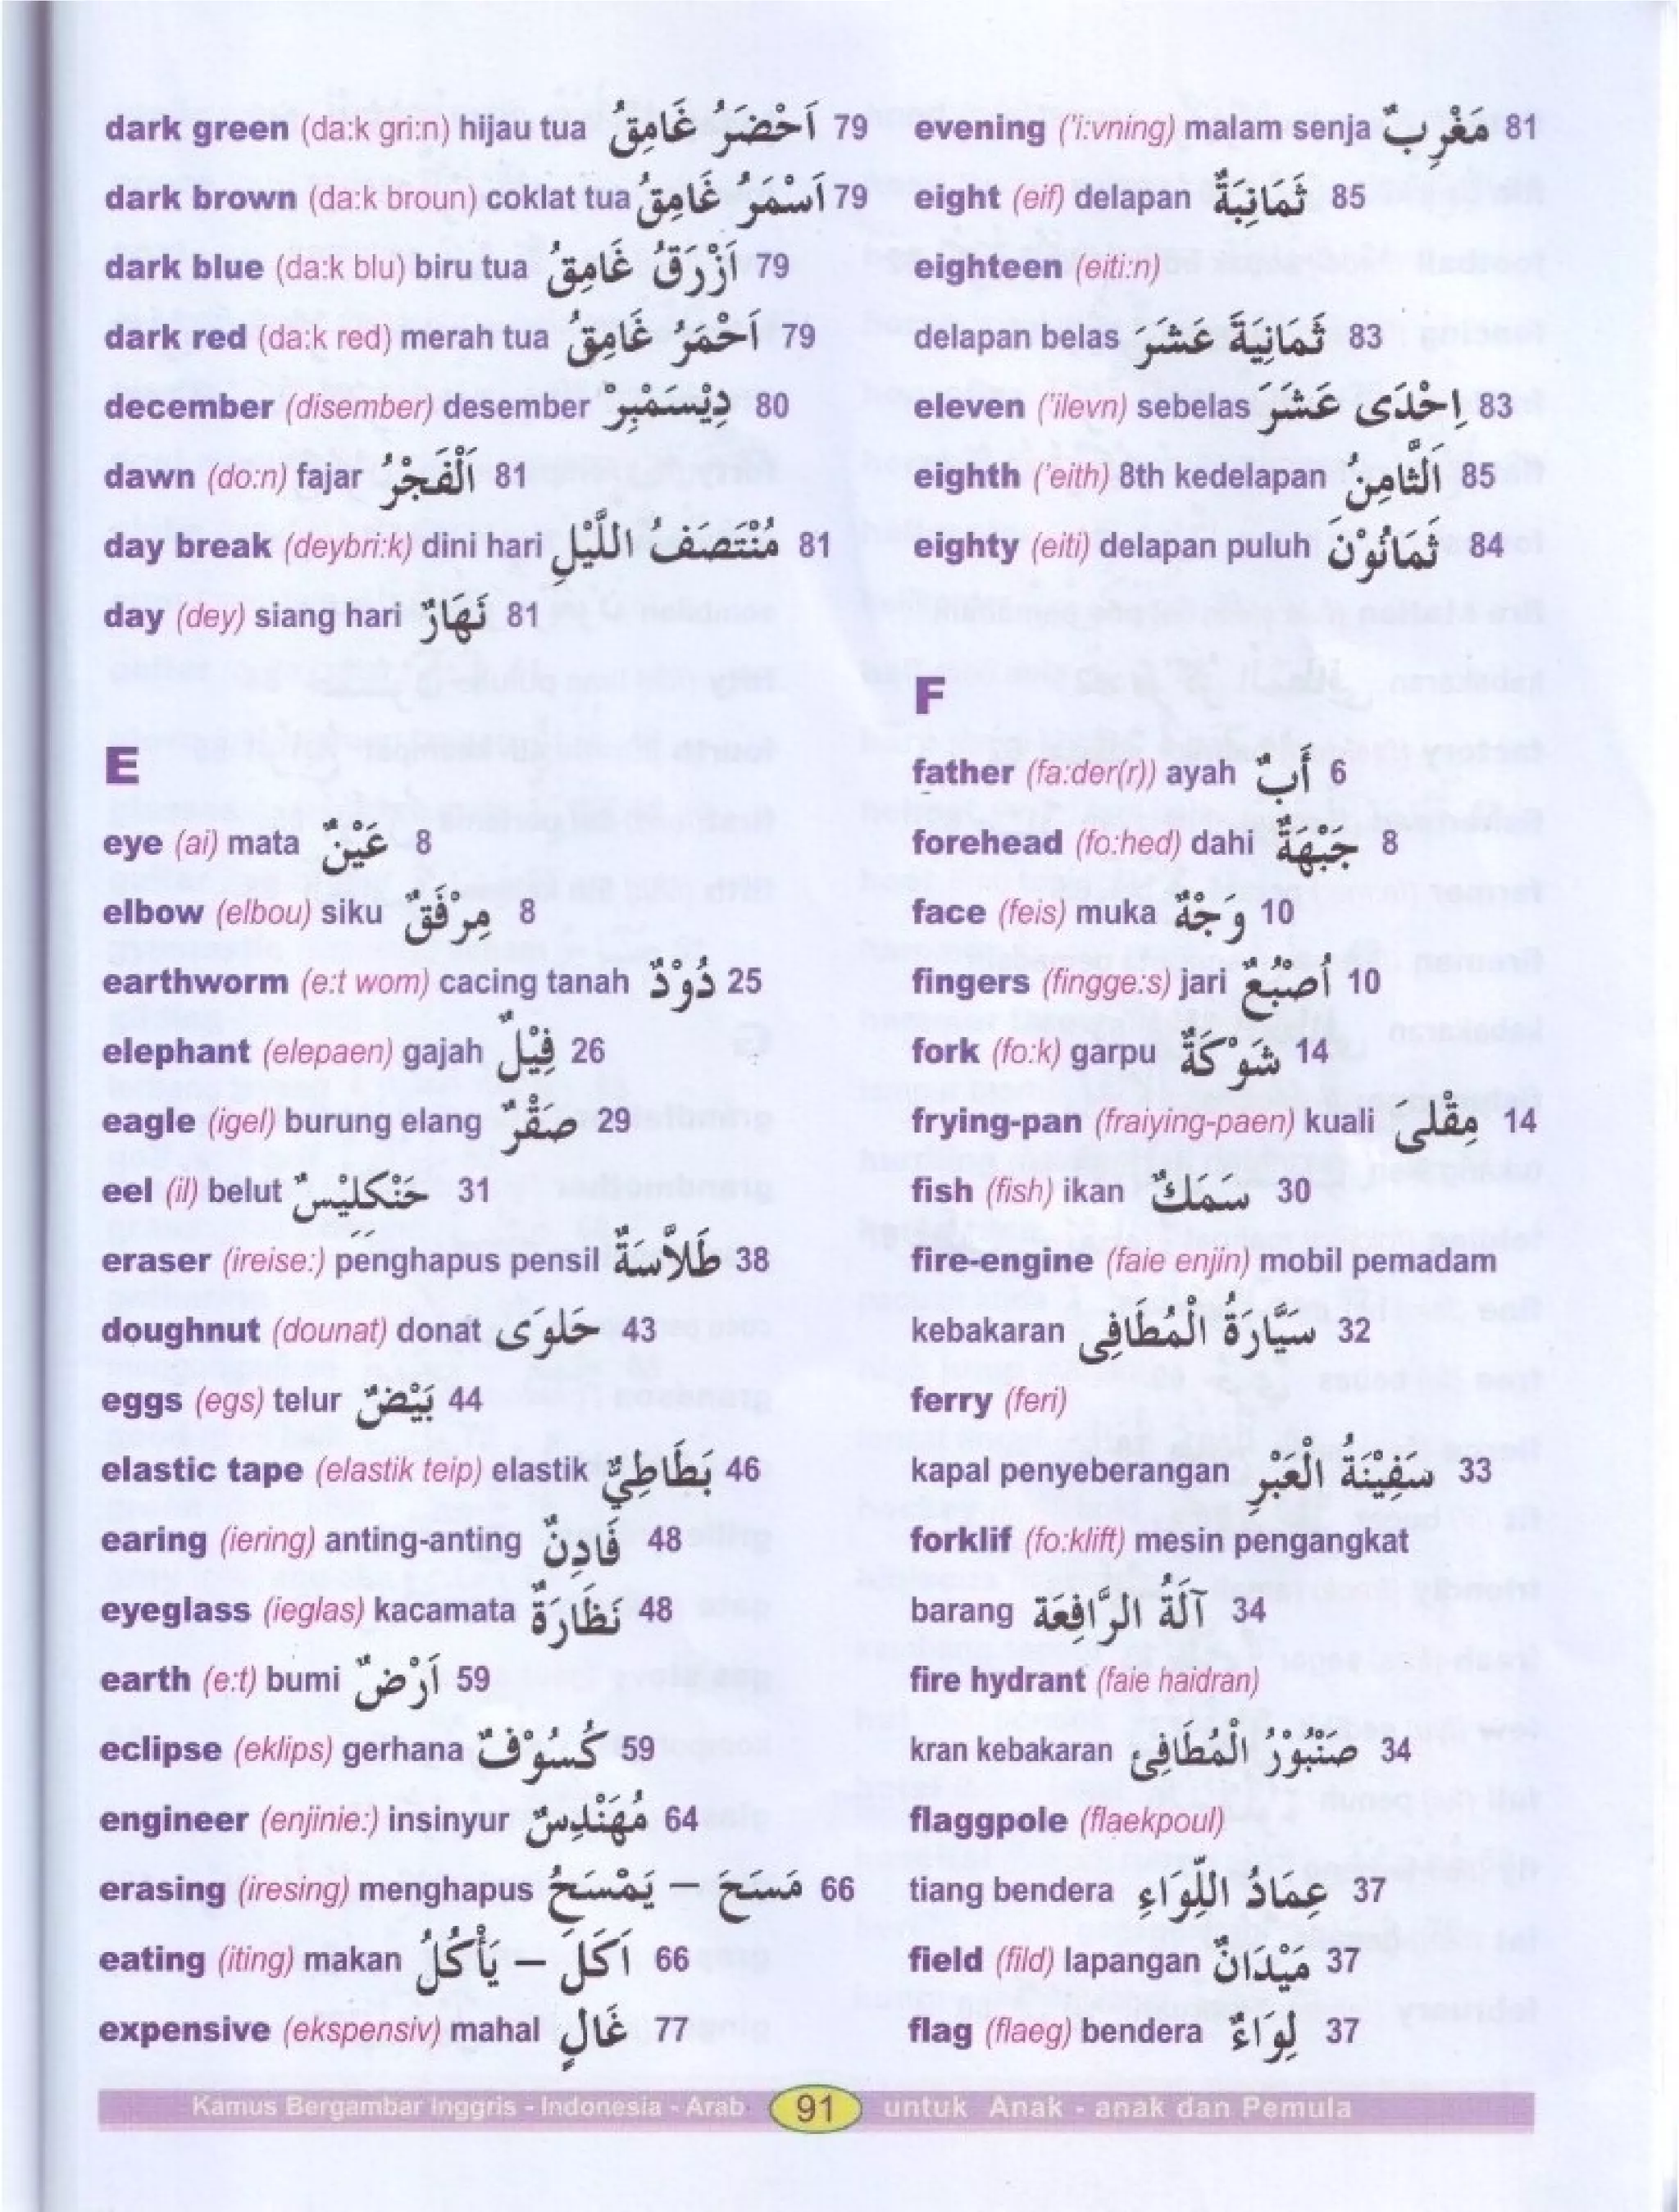 dark green (da:k gri:n) hijau tua اَخْضَرُ غَامِقُ 79
dark brown (da:k broun) coklat tua اَسْمَرُ غَامِقُ 79
dark blue (da:k blu) biru tua اَزْرَقُ غَامِقُ 79
dark red (da:k red) merah tua اَحْمَرُ غَامِقُ 79
december (disember) desember دِيْسَمْبِرْ 80
dawn (do:n) fajar اَلْفَجْرُ 81
day break (deybri:k) dini hari مُنْتَصَفُ اللَّيْلِ 81
day (dey) siang hari نَهَارٌ 81
E
eye (ai) mata عَيْنٌ 8
elbow (elbou) siku مِرْفَقٌ 8
earthworm (e:t wom) cacing tanah دُوْدٌ 25
elephant (elepaen) gajah فِيْلٌ 26
eagle (igel) burung elang صَقْرٌ 29
eel (il) belut حَنْكَلِيْسٌ 31
eraser (ireise:) penghapus pensil طَلاَّسَةٌ 38
doughnut (dounat) donat حَلوَى 43
eggs (egs) telur بَيْضٌ 44
elastic tape (elastik teip) elastik بَطَّاطِيٌّ 46
earing (iering) anting-anting قَادِنٌ 48
eyeglass (ieglas) kacamata نَظَارَةٌ 48
earth (e:t) bumi اَرْضٌ 59
eclipse (eklips) gerhana كُسُوْفٌ 59
engineer (enjinie:) insinyur مُهَنْدِسٌ 64
erasing (iresing) menghapus مَسَحَ – يَمْسَحُ 66
eating (iting) makan اَكَلَ – يَأْكُلُ 66
expensive (ekspensiv) mahal غَالٍ 77
evening ('i:vning) malam senja مَغْرِبٌ 81
eight (eif) delapan ثَمَانِيَةٌ 85
eighteen (eiti:n)
delapan belas ثَمَانِيَةَ عَشَرَ 83
eleven ('ilevn) sebelas اِحْدَى عَشَرَ 83
eighth ('eith) 8th kedelapan اَلثَّامِنُ 85
eighty (eiti) delapan puluh ثَمَانُوْنَ 84
F
father (fa:der(r)) ayah أَبٌ 6
forehead (fo:hed) dahi جَبْهَةٌ 8
face (feis) muka وَجْهٌ 10
fingers (fingge:s) jari أَصْبُعٌ 10
fork (fo:k) garpu شَوْكَةٌ 14
frying-pan (fraiying-paen) kuali مِقْلَى 14
fish (fish) ikan سَمَكٌ 30
fire-engine (faie enjin) mobil pemadam
kebakaran سَيَّارَةُ الْمُطَافِى 32
ferry (feri)
kapal penyeberangan سَفِيْنَةُ الْعَبْرِ 33
forklif (fo:klift) mesin pengangkat
barang آلَةُ الرَّافِعَة 34
fire hydrant (faie haidran)
kran kebakaran صُنْبُوْرُ الْمُطَافِئ 34
flaggpole (flaekpoul)
tiang bendera عِمَادُ اللِّوَاءِ 37
field (fild) lapangan مَيْدَانٌ 37
flag (flaeg) bendera لِوَاءٌ 37
Kamus Bergambar Inggris - Indonesia - Arab 91 untuk Anak - anak dan Pemula